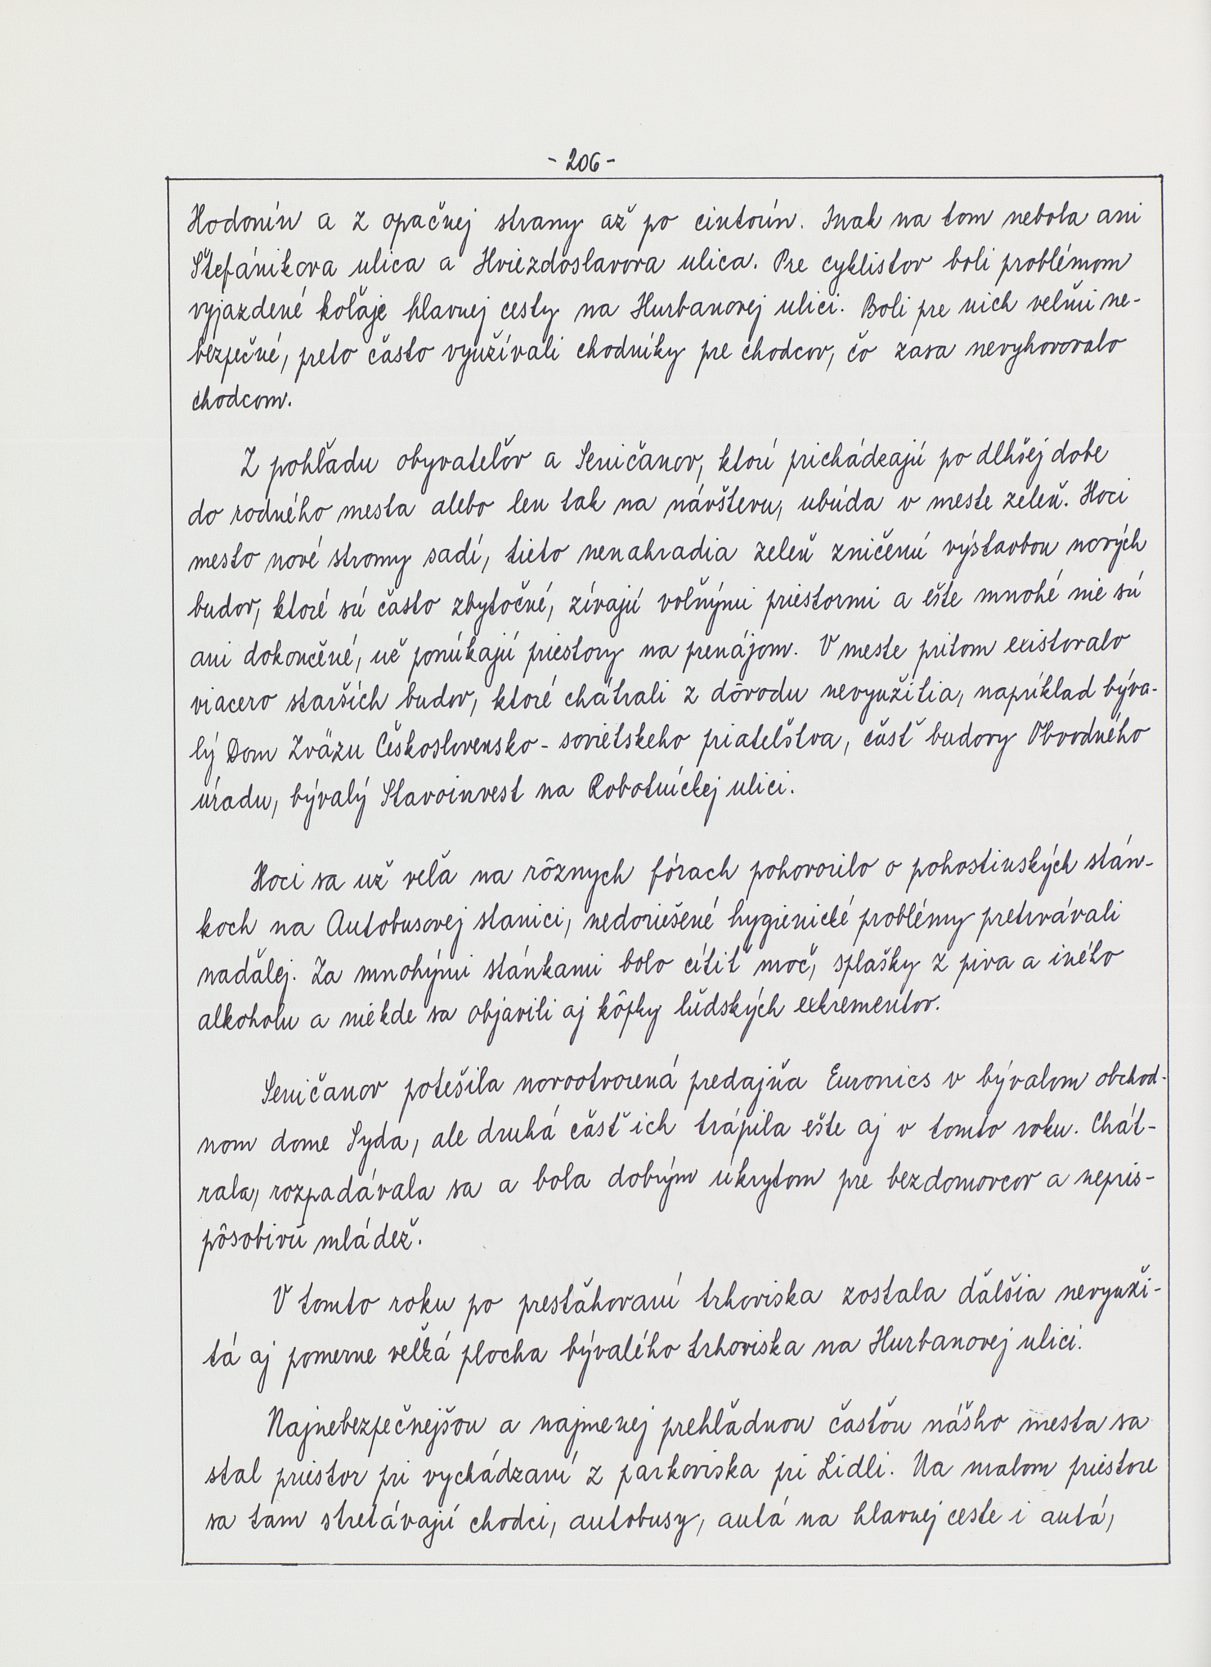 - 206 -
Hodonín a z opačnej strany až po cintorín. Inak na tom nebola ani
Štefánikova ulica a Hviezdoslavova ulica. Pre cyklistov boli problémom
vyjazdené koľaje hlavnej cesty na Hurbanovej ulici. Boli pre nich veľmi ne-
bezpečné, preto často využívali chodníky pre chodcov, čo zasa nevyhovovalo
chodcom.
Z pohľadu obyvateľov a Seničanov, ktorí prichádzajú po dlhšej dobe
do rodného mesta alebo len tak na návštevu, ubúda v meste zeleň. Hoci
mesto nové stromy sadí, tieto nenahradia zeleň zničenú výstavbou nových
budov, ktoré sú často zbytočné, zívajú voľnými priestormi a ešte mnohé nie sú
ani dokončené, už ponúkajú priestory na prenájom. V meste pritom existovalo
viacero starších budov, ktoré chátrali z dôvodu nevyužitia, napríklad býva-
lý Dom Zväzu Československo - sovietskeho priateľstva, časť budovy Obvodného
úradu, bývalý Stavoinvest na Robotníckej ulici.
Hoci sa už veľa na rôznych fórach pohovorilo o pohostinských stán-
koch na Autobusovej stanici, nedoriešené hygienické problémy pretrvávali
naďalej. Za mnohými stánkami bolo cítiť moč, splašky z piva a iného
alkoholu a niekde sa objavili aj kôpky ľudských exkrementov.
Seničanov potešila novootvorená predajňa Euronics v bývalom obchod-
nom dome Syda, ale druhá časť ich trápila ešte aj v tomto roku. Chát-
rala, rozpadávala sa a bola dobrým úkrytom pre bezdomovcov a nepris-
pôsobivú mládež.
V tomto roku po presťahovaní trhoviska zostala ďalšia nevyuži-
tá aj pomerne veľká plocha bývalého trhoviska na Hurbanovej ulici.
Najnebezpečnejšou a najmenej prehľadnou časťou nášho mesta sa
stal priestor pri vychádzaní z parkoviska pri Lidli. Na malom priestore
sa tam stretávajú chodci, autobusy, autá na hlavnej ceste i autá,